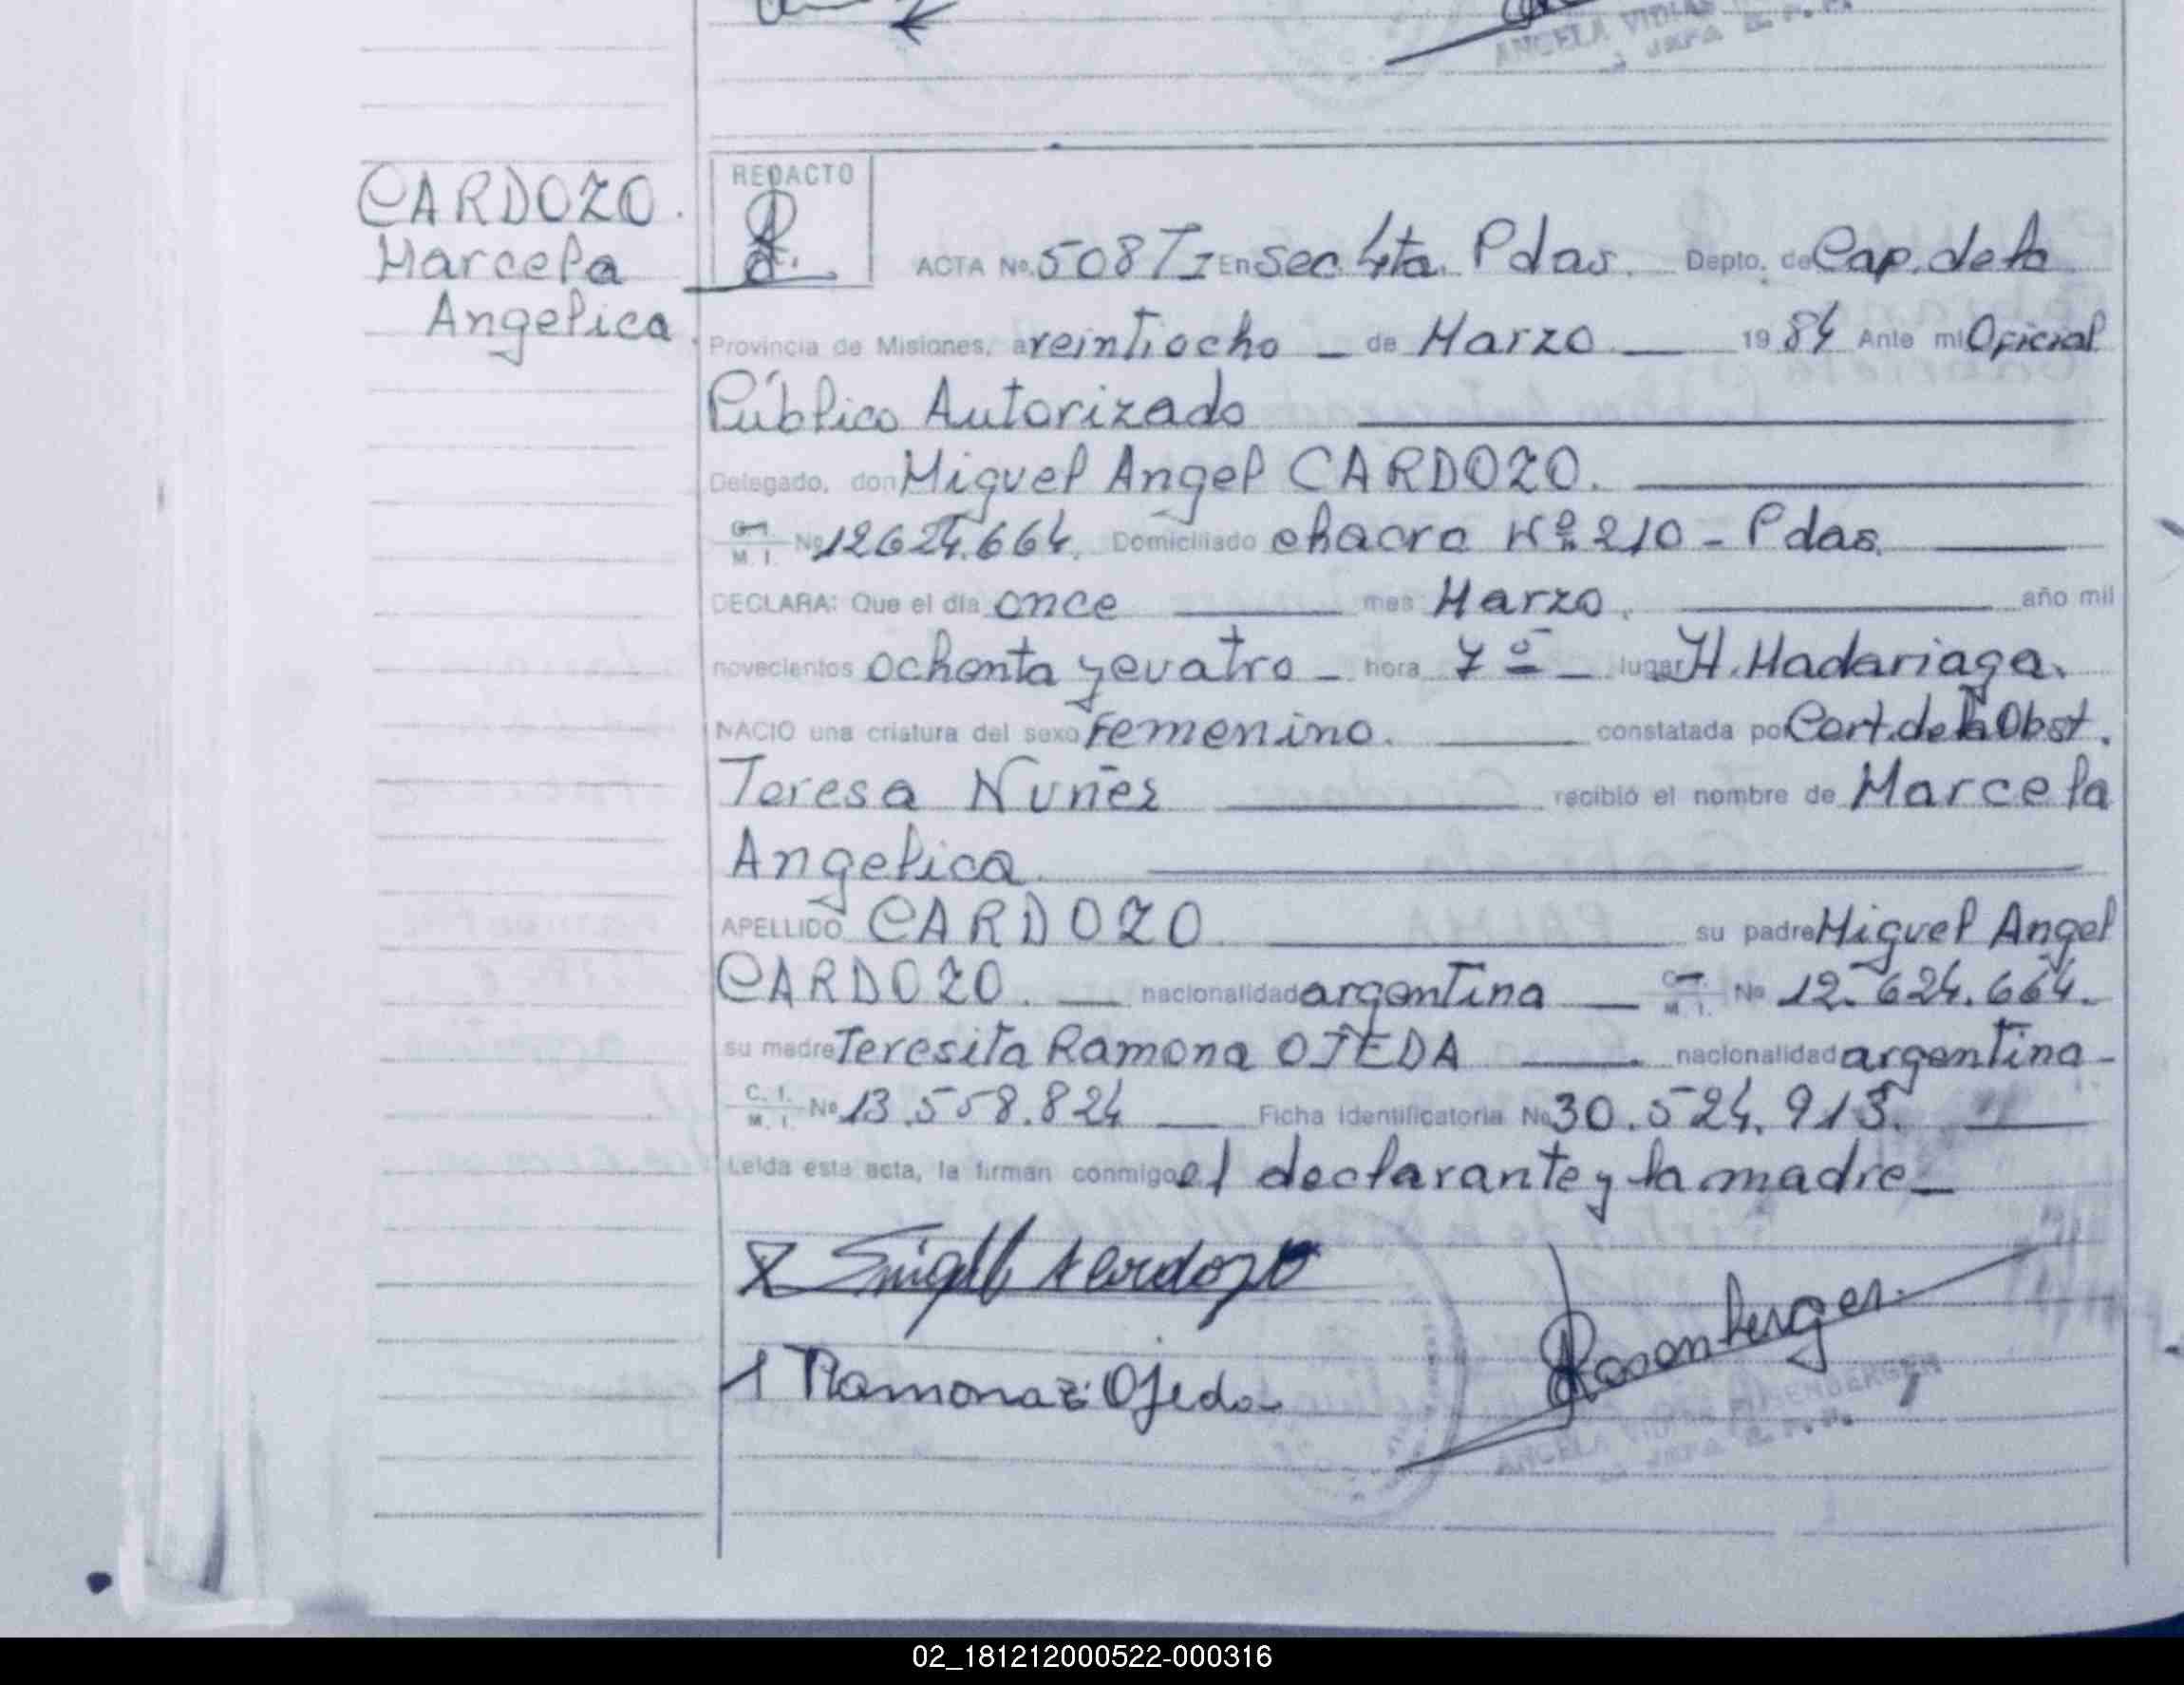 ANGELA VIDIAS
CARDOZO.
Marcela
Angelica.
REDACTO
ACTA No. 508 TI En Sec. 4ta. Pdas. Depto. de Cap. de la
Provincia de Misiones, a veintiocho - de Marzo 1984 Ante mi Oficial
Público Autorizado
Delegado, don Miguel Angel CARDOZO.
C. I. M. I. No 12624.664. Domiciliado chacra Nº 210 - Pdas.
DECLARA: Que el día once mes Marzo. año mil
novecientos ochenta y cuatro - hora 7º - lugar H. Madariaga.
NACIO una criatura del sexo Femenino. constatada por Cert. de la Obst.
Teresa Nuñez recibió el nombre de Marcela
Angelica.
APELLIDO CARDOZO su padre Miguel Angel
CARDOZO. nacionalidad argentina C. I. M. I. No 12.624.664.
su madre Teresita Ramona OJEDA nacionalidad argentina -
C. I. M. I. No 13.558.824 Ficha Identificatoria No 30.524.913.
Leída esta acta, la firman conmigo el declarante y la madre -
Ramona Ojeda
Rosenberger
02_181212000522-000316